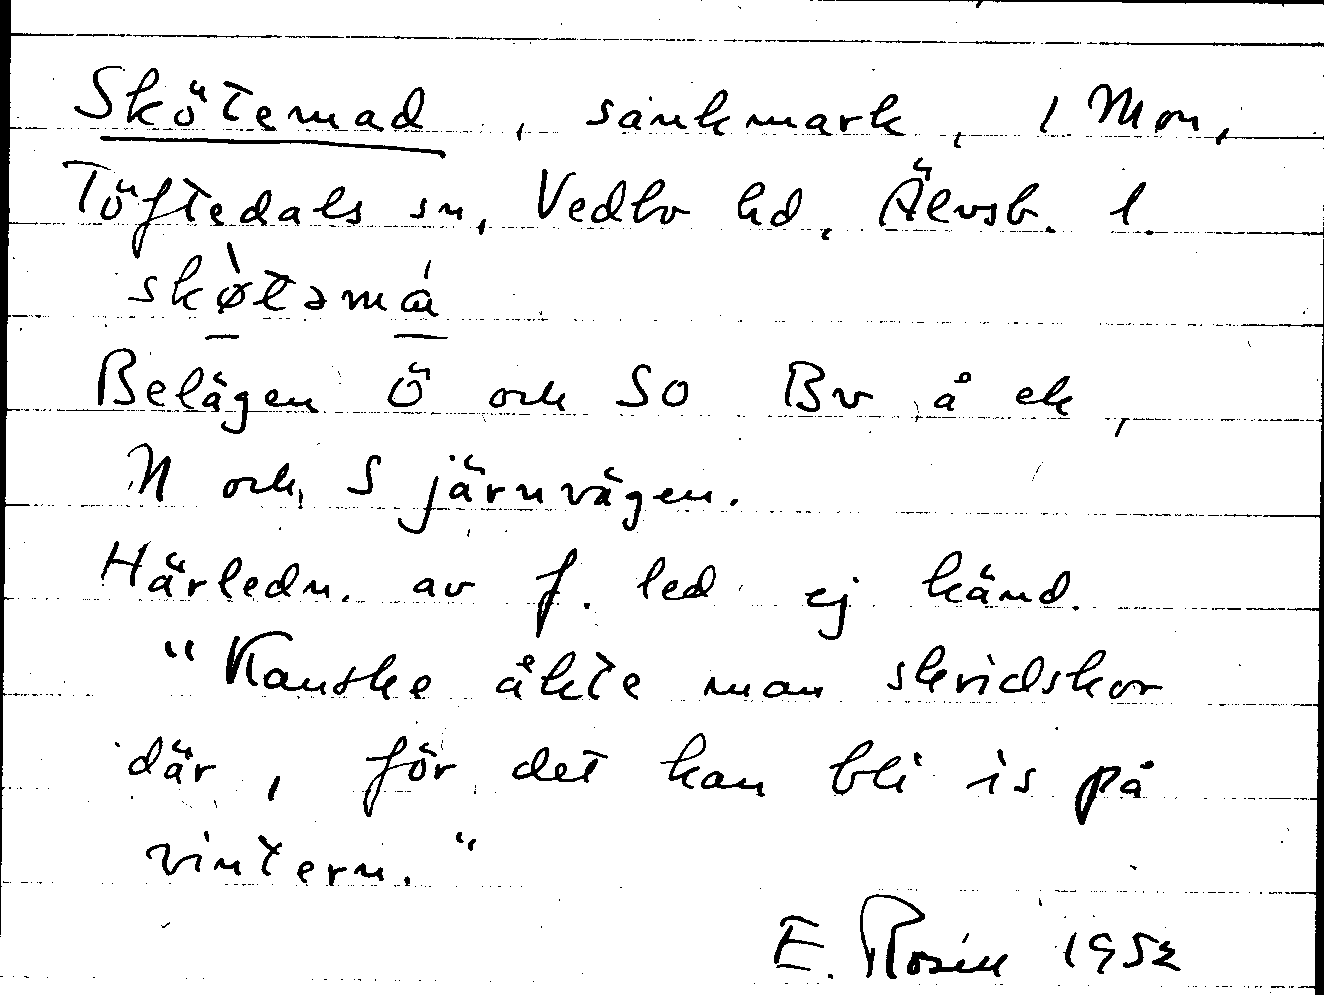 Skötemad, sankmark, 1 Mon,
Töftedals sn, Vedbo hd, Älvsb. l.
skø̀təmá
Belägen Ö och SO Bv å ek,
N och S järnvägen.
Härledn. av f. led ej känd.
"Kanske åkte man skridskor
där, för det kan bli is på
vintern."
E. Rosén 1952